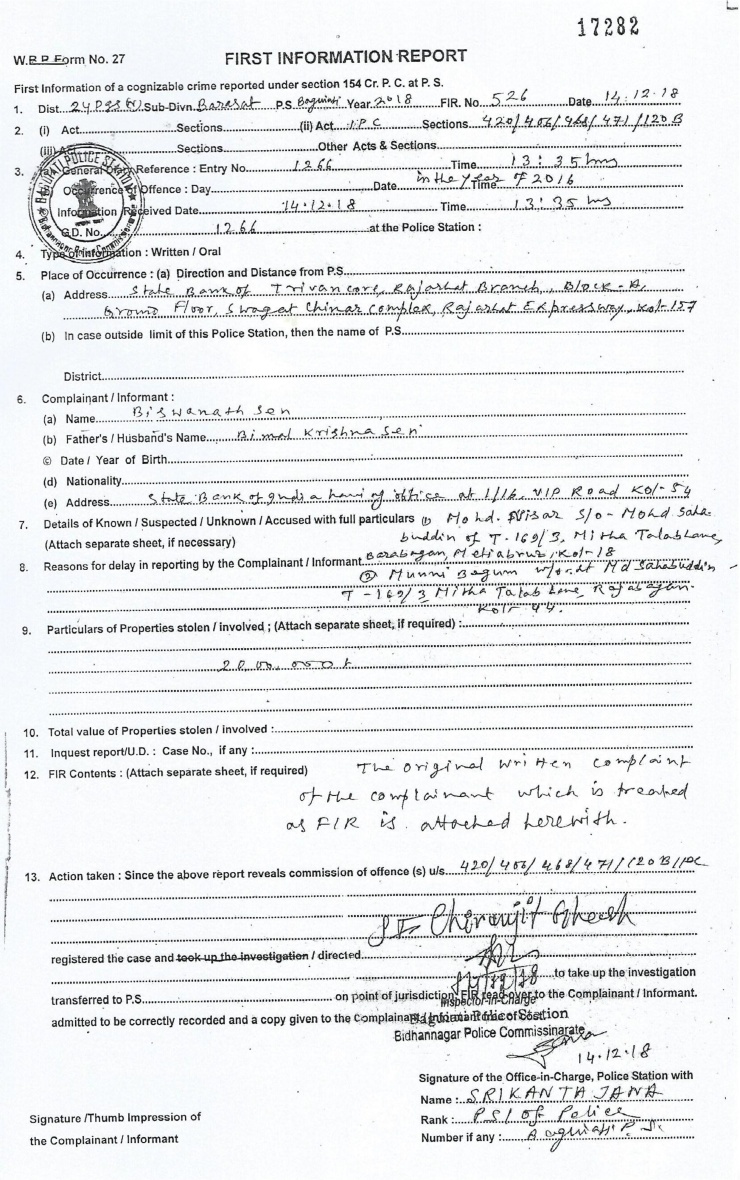 17282
W.B.P Form No. 27
FIRST INFORMATION REPORT
First Information of a cognizable crime reported under section 154 Cr. P. C. at P. S.
1. Dist. 24 Pgs (N) Sub-Divn. Barasat P.S. Baguiati Year 2018 FIR. No. 526 Date 14.12.18
2. (i) Act Sections (ii) Act I.P.C Sections 420/406/468/471/120B
(iii) Act Sections Other Acts & Sections
3. (a) General Diary Reference : Entry No. 1266 Time 13:35 hrs
Occurrence of Offence : Day Date in the year Time of 2016
Information Received Date 14.12.18 Time 13:35 hrs
G.D. No. 1266 at the Police Station :
4. Type of Information : Written / Oral
5. Place of Occurrence : (a) Direction and Distance from P.S.
(a) Address State Bank of Travancore, Rajarhat Branch, Block-A,
Ground Floor, Swagat Chinar Complex, Rajarhat Expressway, Kol-157
(b) In case outside limit of this Police Station, then the name of P.S.
District
6. Complainant / Informant :
(a) Name Biswanath Sen
(b) Father's / Husband's Name Bimal Krishna Sen
© Date / Year of Birth
(d) Nationality
(e) Address State Bank of India having office at 1/16, VIP Road Kol-54
7. Details of Known / Suspected / Unknown / Accused with full particulars (1) Mohd. Nisar S/o- Mohd Saha-
(Attach separate sheet, if necessary) buddin of T-169/3, Mitha Talab Lane,
Barabagan, Metiabruz, Kol-18
8. Reasons for delay in reporting by the Complainant / Informant
(2) Munni Begum w/o Lt Md Sahabuddin
T-169/3 Mitha Talab Lane, Rajabagan.
Kol- 44.
9. Particulars of Properties stolen / involved ; (Attach separate sheet, if required) :
10. Total value of Properties stolen / involved :
11. Inquest report/U.D. : Case No., if any :
12. FIR Contents : (Attach separate sheet, if required) The original written complaint
of the complainant which is treated
as FIR is attached herewith.
13. Action taken : Since the above report reveals commission of offence (s) u/s. 420/406/468/471/120B IPC
SI Chiranjit Ghosh
registered the case and took up the investigation / directed
14/12/18 to take up the investigation
transferred to P.S. on point of jurisdiction, FIR read over to the Complainant / Informant.
Inspector-in-Charge
admitted to be correctly recorded and a copy given to the Complainant / Informant free of cost
Baguiati Police Station
Bidhannagar Police Commissinarate
14.12.18
Signature of the Office-in-Charge, Police Station with
Name : SRIKANTA JANA
Signature /Thumb Impression of
Rank : PSI of Police
the Complainant / Informant
Number if any : Baguiati P.S.